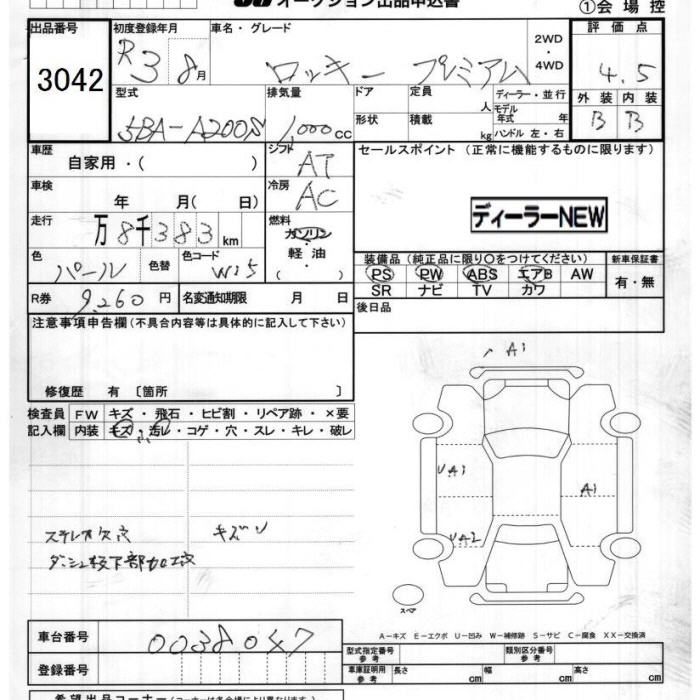 オークション出品申込書
①会場控
出品番号 初度登録年月 車名・グレード 2WD ・4WD 評価点
3042 R3 8月 ロッキー プレミアム 4.5
型式 排気量 ドア 定員 人 ディーラー・並行 外装 内装
5BA-A200S 1,000cc 形状 積載 kg モデル年式 年 ハンドル 左・右 B B
車歴 自家用・( ) シフト AT セールスポイント (正常に機能するものに限ります)
車検 年 月( 日) 冷房 AC
ディーラーNEW
走行 万8千383km 燃料 ガソリン
軽油
( ・ )
色 パール 色替 色コード W25 装備品 (純正品に限り○をつけてください) 新車保証書
PS PW ABS エアB AW 有・無
SR ナビ TV カワ
R券 9,260円 名変通知期限 月 日 後日品
注意事項申告欄 (不具合内容等は具体的に記入して下さい)
修復歴 有 〔箇所 〕
検査員 FW キズ・飛石・ヒビ割・リペア跡・×要
記入欄 内装 キズ・汚レ・コゲ・穴・スレ・キレ・破レ
A1
UA1 A1
UA2
ステレオ欠穴 キズ
ダッシュ板下部加工穴
スペア
A-キズ E-エクボ U-凹み W-補修跡 S-サビ C-腐食 XX-交換済
車台番号 0038047
型式指定番号 参考 類別区分番号 参考
登録番号 車庫証明用 参考 長さ cm 幅 cm 高さ cm
希望出品コーナー (コーナーは各会場により異なります)